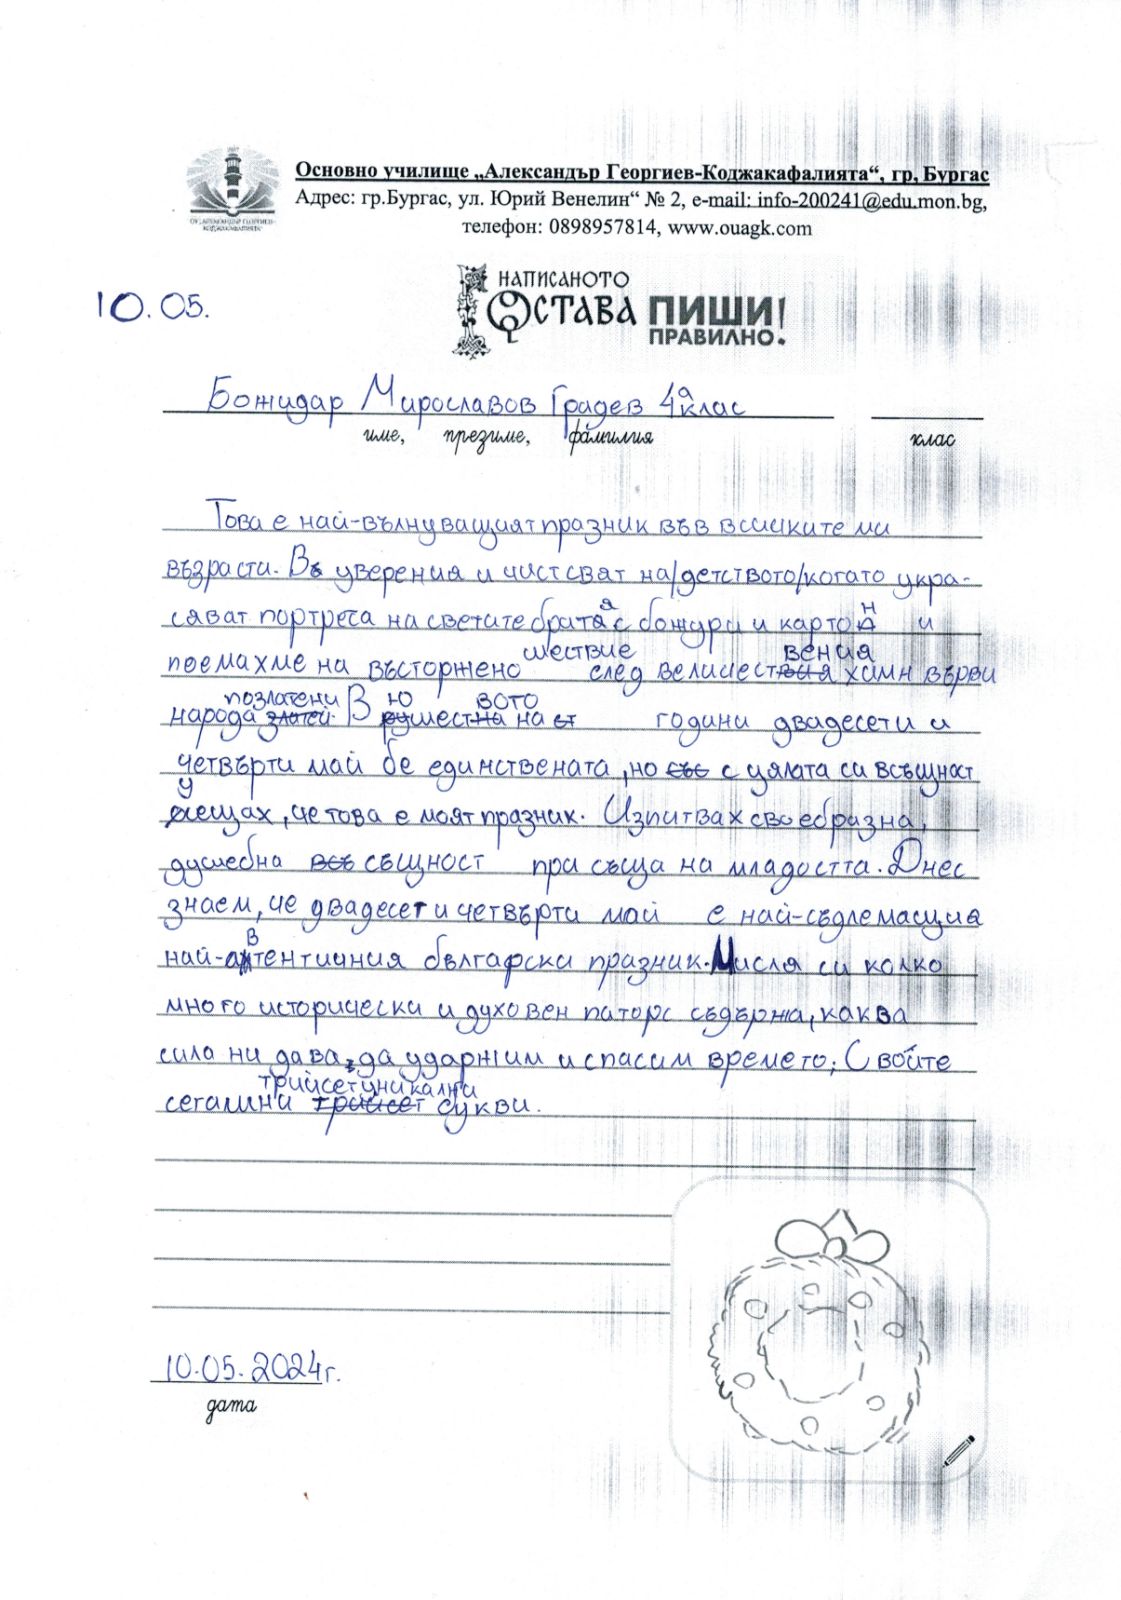 Основно училище „Александър Георгиев-Коджакафалията“, гр. Бургас
Адрес: гр.Бургас, ул. Юрий Венелин“ № 2, e-mail: info-200241@edu.mon.bg,
телефон: 0898957814, www.ouagk.com
ОУ „АЛЕКСАНДЪР ГЕОРГИЕВ-
КОДЖАКАФАЛИЯТА“
НАПИСАНОТО
ОСТАВА ПИШИ
ПРАВИЛНО!
10.05.
Божидар Мирославов Градев 4а клас
име, презиме, фамилия клас
Това е най-вълнуващият празник във всичките ми
възрасти. В уверения и чист свят на/детството/когато укра-
сяват портрета на светите братя с божури и картон и
поемахме на въсторжено шествие след величествения химн върви
народа позлатени В юшество на години двадесети и
четвърти май бе единствената, но с цялата си всъщност
усещах, че това е моят празник. Изпитвах своебразна,
душебна същност при съща на младостта. Днес
знаем, че двадесет и четвърти май е най-съдлемащиа
най-автентичния български празник. Мисля си колко
много исторически и духовен паторс съдържа, каква
сила ни дава, да ударжим и спасим времето; С войте
сегашни трийсет уникални букви.
10.05.2024г.
дата